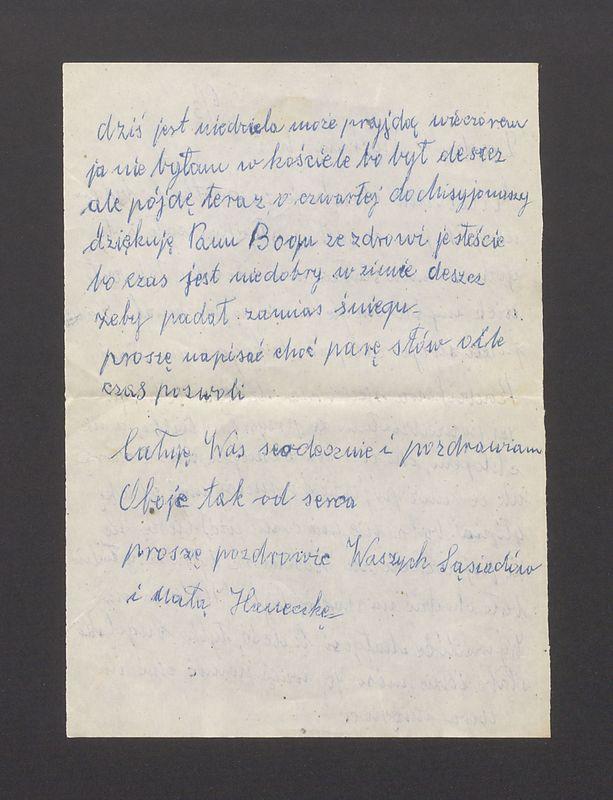 dziś jest niedziela może przyjdą wieczorem
ja nie byłam w kościele bo był deszcz
ale pójdę teraz o czwartej do Misyjonaszy
dziękuję Panu Bogu ze zdrowi jesteście
bo czas jest niedobry w zimie deszcz
żeby padał zamias śniegu-
proszę napisać choć parę słów oile
czas pozwoli
Całuję Was serdecznie i pozdrawiam
Oboje tak od serca
proszę pozdrowić Waszych Sąsiadów
i małą Haneczkę